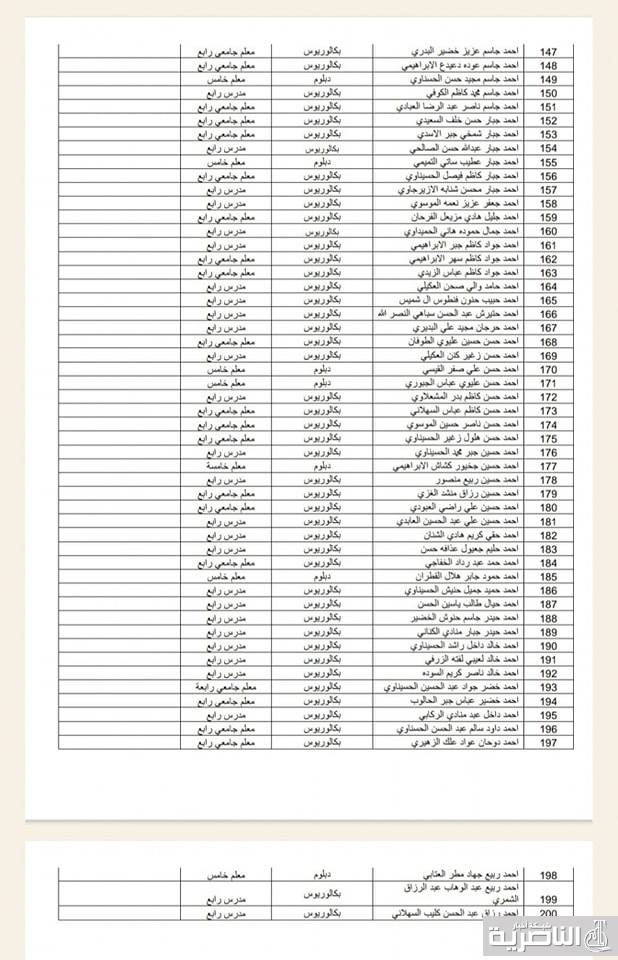 147 احمد جاسم عزيز خضير البدري بكالوريوس معلم جامعي رابع
148 احمد جاسم عوده دعيدع الابراهيمي بكالوريوس معلم جامعي رابع
149 احمد جاسم مجيد حسن الحسناوي دبلوم معلم خامس
150 احمد جاسم محمد كاظم الكوفي بكالوريوس مدرس رابع
151 احمد جاسم ناصر عبد الرضا العبادي بكالوريوس معلم جامعي رابع
152 احمد جبار حسن خلف السعيدي بكالوريوس معلم جامعي رابع
153 احمد جبار شمخي جبر الاسدي بكالوريوس معلم جامعي رابع
154 احمد جبار عبدالله حسن الصالحي بكالوريوس مدرس رابع
155 احمد جبار عطيب ساتي التميمي دبلوم معلم خامس
156 احمد جبار كاظم فيصل الحسيناوي بكالوريوس معلم جامعي رابع
157 احمد جبار محسن شنابه الازيرجاوي بكالوريوس مدرس رابع
158 احمد جعفر عزيز نعمه الموسوي بكالوريوس مدرس رابع
159 احمد جليل هادي مزيعل الفرحان بكالوريوس معلم جامعي رابع
160 احمد جمال حموده هاني الحميداوي بكالوريوس مدرس رابع
161 احمد جواد كاظم جبر الابراهيمي بكالوريوس مدرس رابع
162 احمد جواد كاظم سهر الابراهيمي بكالوريوس معلم جامعي رابع
163 احمد جواد كاظم عباس الزيدي بكالوريوس معلم جامعي رابع
164 احمد حامد والي صحن العكيلي بكالوريوس مدرس رابع
165 احمد حبيب حنون فنطوس ال شميس بكالوريوس مدرس رابع
166 احمد حتيرش عبد الحسن سباهي النصر الله بكالوريوس مدرس رابع
167 احمد حرجان مجيد علي البديري بكالوريوس مدرس رابع
168 احمد حسن حسين عليوي الطوفان بكالوريوس معلم جامعي رابع
169 احمد حسن زغير كنن العكيلي بكالوريوس مدرس رابع
170 احمد حسن علي صفر القيسي دبلوم معلم خامس
171 احمد حسن عليوي عباس الجبوري دبلوم معلم خامس
172 احمد حسن كاظم بدر المشعلاوي بكالوريوس مدرس رابع
173 احمد حسن كاظم عباس السهلاني بكالوريوس معلم جامعي رابع
174 احمد حسن ناصر حسين الموسوي بكالوريوس معلم جامعي رابع
175 احمد حسن هلول زغير الحسيناوي بكالوريوس معلم جامعي رابع
176 احمد حسين جبر محمد الحسيناوي بكالوريوس مدرس رابع
177 احمد حسين جخيور كشاش الابراهيمي دبلوم معلم خامسة
178 احمد حسين ربيع منصور بكالوريوس مدرس رابع
179 احمد حسين رزاق منشد الغزي بكالوريوس معلم جامعي رابع
180 احمد حسين علي راضي العبودي بكالوريوس معلم جامعي رابع
181 احمد حسين علي عبد الحسين العابدي بكالوريوس مدرس رابع
182 احمد حقي كريم هادي الشنان بكالوريوس مدرس رابع
183 احمد حليم جعيول عذافه حسن بكالوريوس مدرس رابع
184 احمد حمد عبد رداد الخفاجي بكالوريوس معلم جامعي رابع
185 احمد حمود جابر هلال القطران دبلوم معلم خامس
186 احمد حميد جميل حنيش الحسيناوي بكالوريوس مدرس رابع
187 احمد حيال طالب ياسين الحسن بكالوريوس مدرس رابع
188 احمد حيدر جاسم حنوش الخضير بكالوريوس مدرس رابع
189 احمد حيدر جبار منادي الكناني بكالوريوس مدرس رابع
190 احمد خالد داخل راشد الحسيناوي بكالوريوس مدرس رابع
191 احمد خالد لعيبي لفته الزرفي بكالوريوس مدرس رابع
192 احمد خالد ناصر كريم السوده بكالوريوس مدرس رابع
193 احمد خضر جواد عبد الحسين الحسيناوي بكالوريوس معلم جامعي رابعة
194 احمد خضير عباس جبر الحالوب بكالوريوس معلم جامعي رابع
195 احمد داخل عبد منادي الركابي بكالوريوس مدرس رابع
196 احمد داود سالم عبد الحسن الحسناوي بكالوريوس معلم جامعي رابع
197 احمد دوحان عواد علك الزهيري بكالوريوس معلم جامعي رابع
198 احمد ربيع جهاد مطر العتابي دبلوم معلم خامس
199 احمد ربيع عبد الوهاب عبد الرزاق الشمري بكالوريوس مدرس رابع
200 احمد رزاق عبد الحسن كليب السهلاني بكالوريوس مدرس رابع
شبكة اخبار
الناصرية